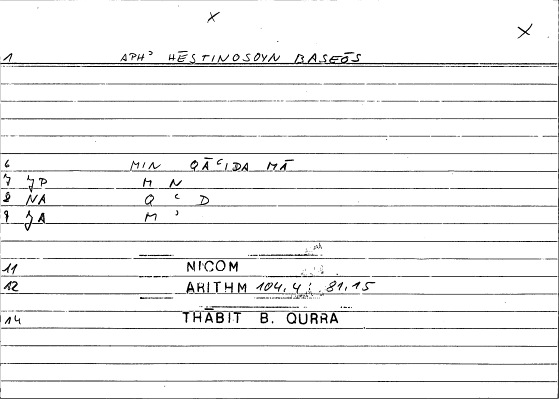 x
x
1 APHʾ HĒSTINOSOYN BASEŌS
6 MIN QĀʿIDA MĀ
7 JP M N
8 NA Q ʿ D
9 JA M ʾ
11 NICOM
12 ARITHM 104,4 : 81,15
14 THĀBIT B. QURRA